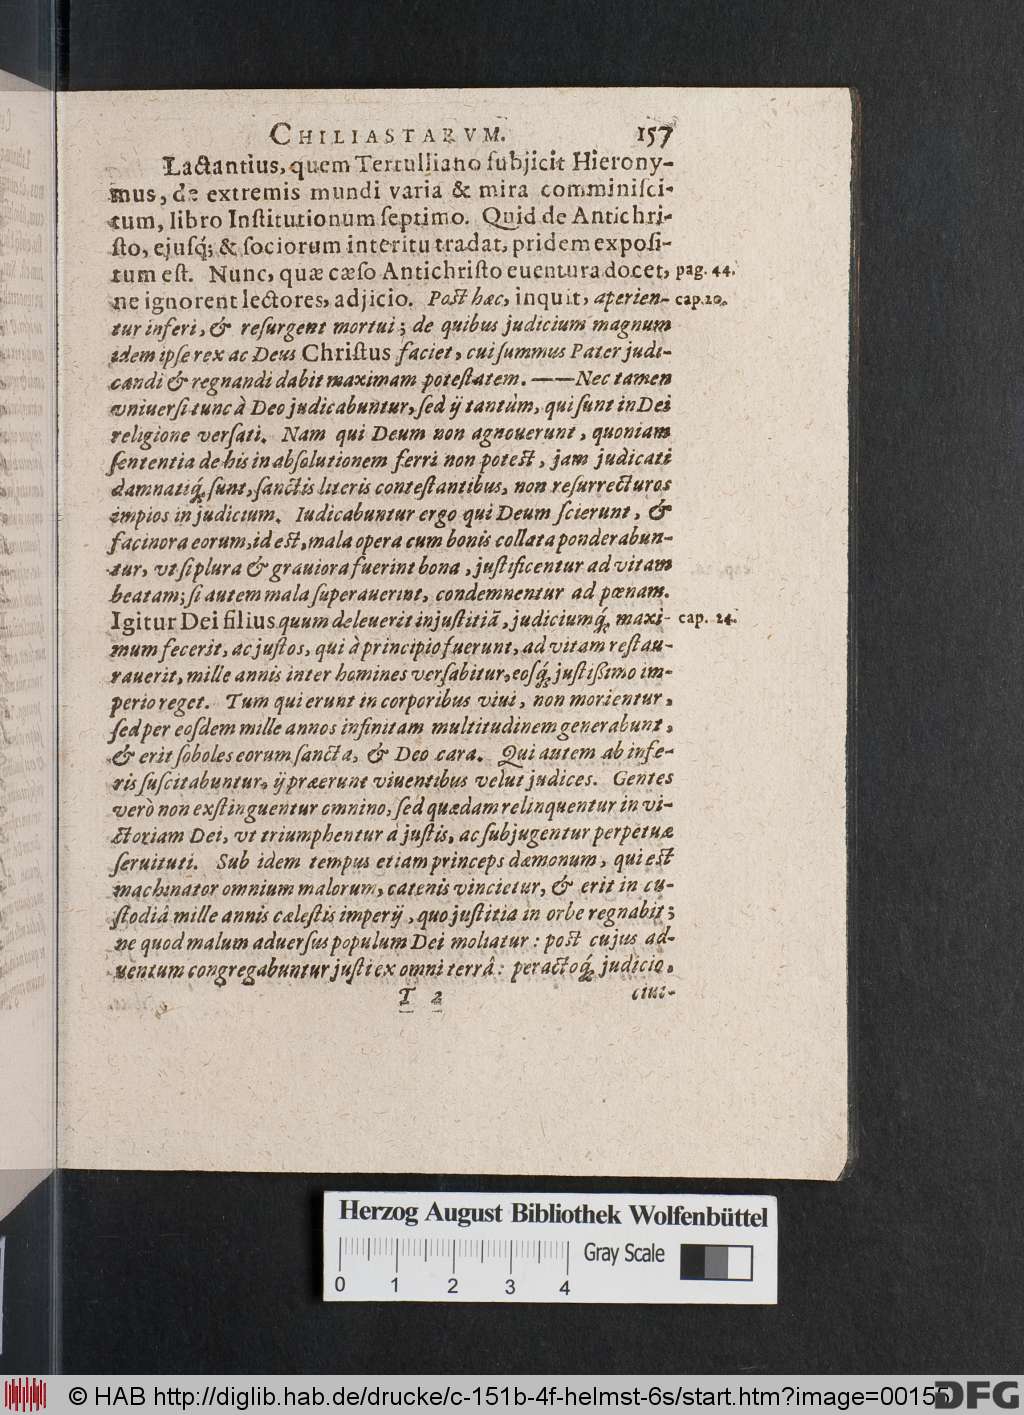 CHILIASTARVM. 157
Lactantius, quem Tertulliano ſubjicit Hierony-
mus, de extremis mundi varia & mira comminiſci-
tum, libro Inſtitutionum ſeptimo. Quid de Antichri-
ſto, ejuſq́; & ſociorum interitu tradat, pridem expoſi-
tum eſt. Nunc, quæ cæſo Antichriſto euentura docet, pag. 44.
ne ignorent lectores, adjicio. Poſt hæc, inquit, aperien- cap. 20.
tur inferi, & reſurgent mortui; de quibus judicium magnum
idem ipſe rex ac Deus Chriſtus faciet, cui ſummus Pater judi-
candi & regnandi dabit maximam poteſtatem. —— Nec tamen
vniuerſi tunc à Deo judicabuntur, ſed ij tantùm, qui ſunt in Dei
religione verſati. Nam qui Deum non agnouerunt, quoniam
ſententia de his in abſolutionem ferri non poteſt, jam judicati
damnatiq́; ſunt, ſanctis literis conteſtantibus, non reſurrecturos
impios in judicium. Iudicabuntur ergo qui Deum ſcierunt, &
facinora eorum, id eſt, mala opera cum bonis collata ponderabun-
tur, vt ſi plura & grauiora fuerint bona, juſtificentur ad vitam
beatam; ſi autem mala ſuperauerint, condemnentur ad pœnam.
Igitur Dei filius quum deleuerit injuſtitiã, judiciumq́; maxi- cap. 24.
mum fecerit, ac juſtos, qui à principio fuerunt, ad vitam reſtau-
rauerit, mille annis inter homines verſabitur, eoſq́; juſtiſſimo im-
perio reget. Tum qui erunt in corporibus viui, non morientur,
ſed per eoſdem mille annos infinitam multitudinem generabunt,
& erit ſoboles eorum ſancta, & Deo cara. Qui autem ab infe-
ris ſuſcitabuntur, ij præerunt viuentibus velut judices. Gentes
verò non exſtinguentur omnino, ſed quædam relinquentur in vi-
ctoriam Dei, vt triumphentur à juſtis, ac ſubjugentur perpetuæ
ſeruituti. Sub idem tempus etiam princeps dæmonum, qui eſt
machinator omnium malorum, catenis vincietur, & erit in cu-
ſtodiâ mille annis cæleſtis imperij, quo juſtitia in orbe regnabit;
ne quod malum aduerſus populum Dei moliatur: poſt cujus ad-
uentum congregabuntur juſti ex omni terrâ: peractoq́; judicio,
T 2 ciui-
Herzog August Bibliothek Wolfenbüttel
Gray Scale
0 1 2 3 4
© HAB http://diglib.hab.de/drucke/c-151b-4f-helmst-6s/start.htm?image=00155
DFG